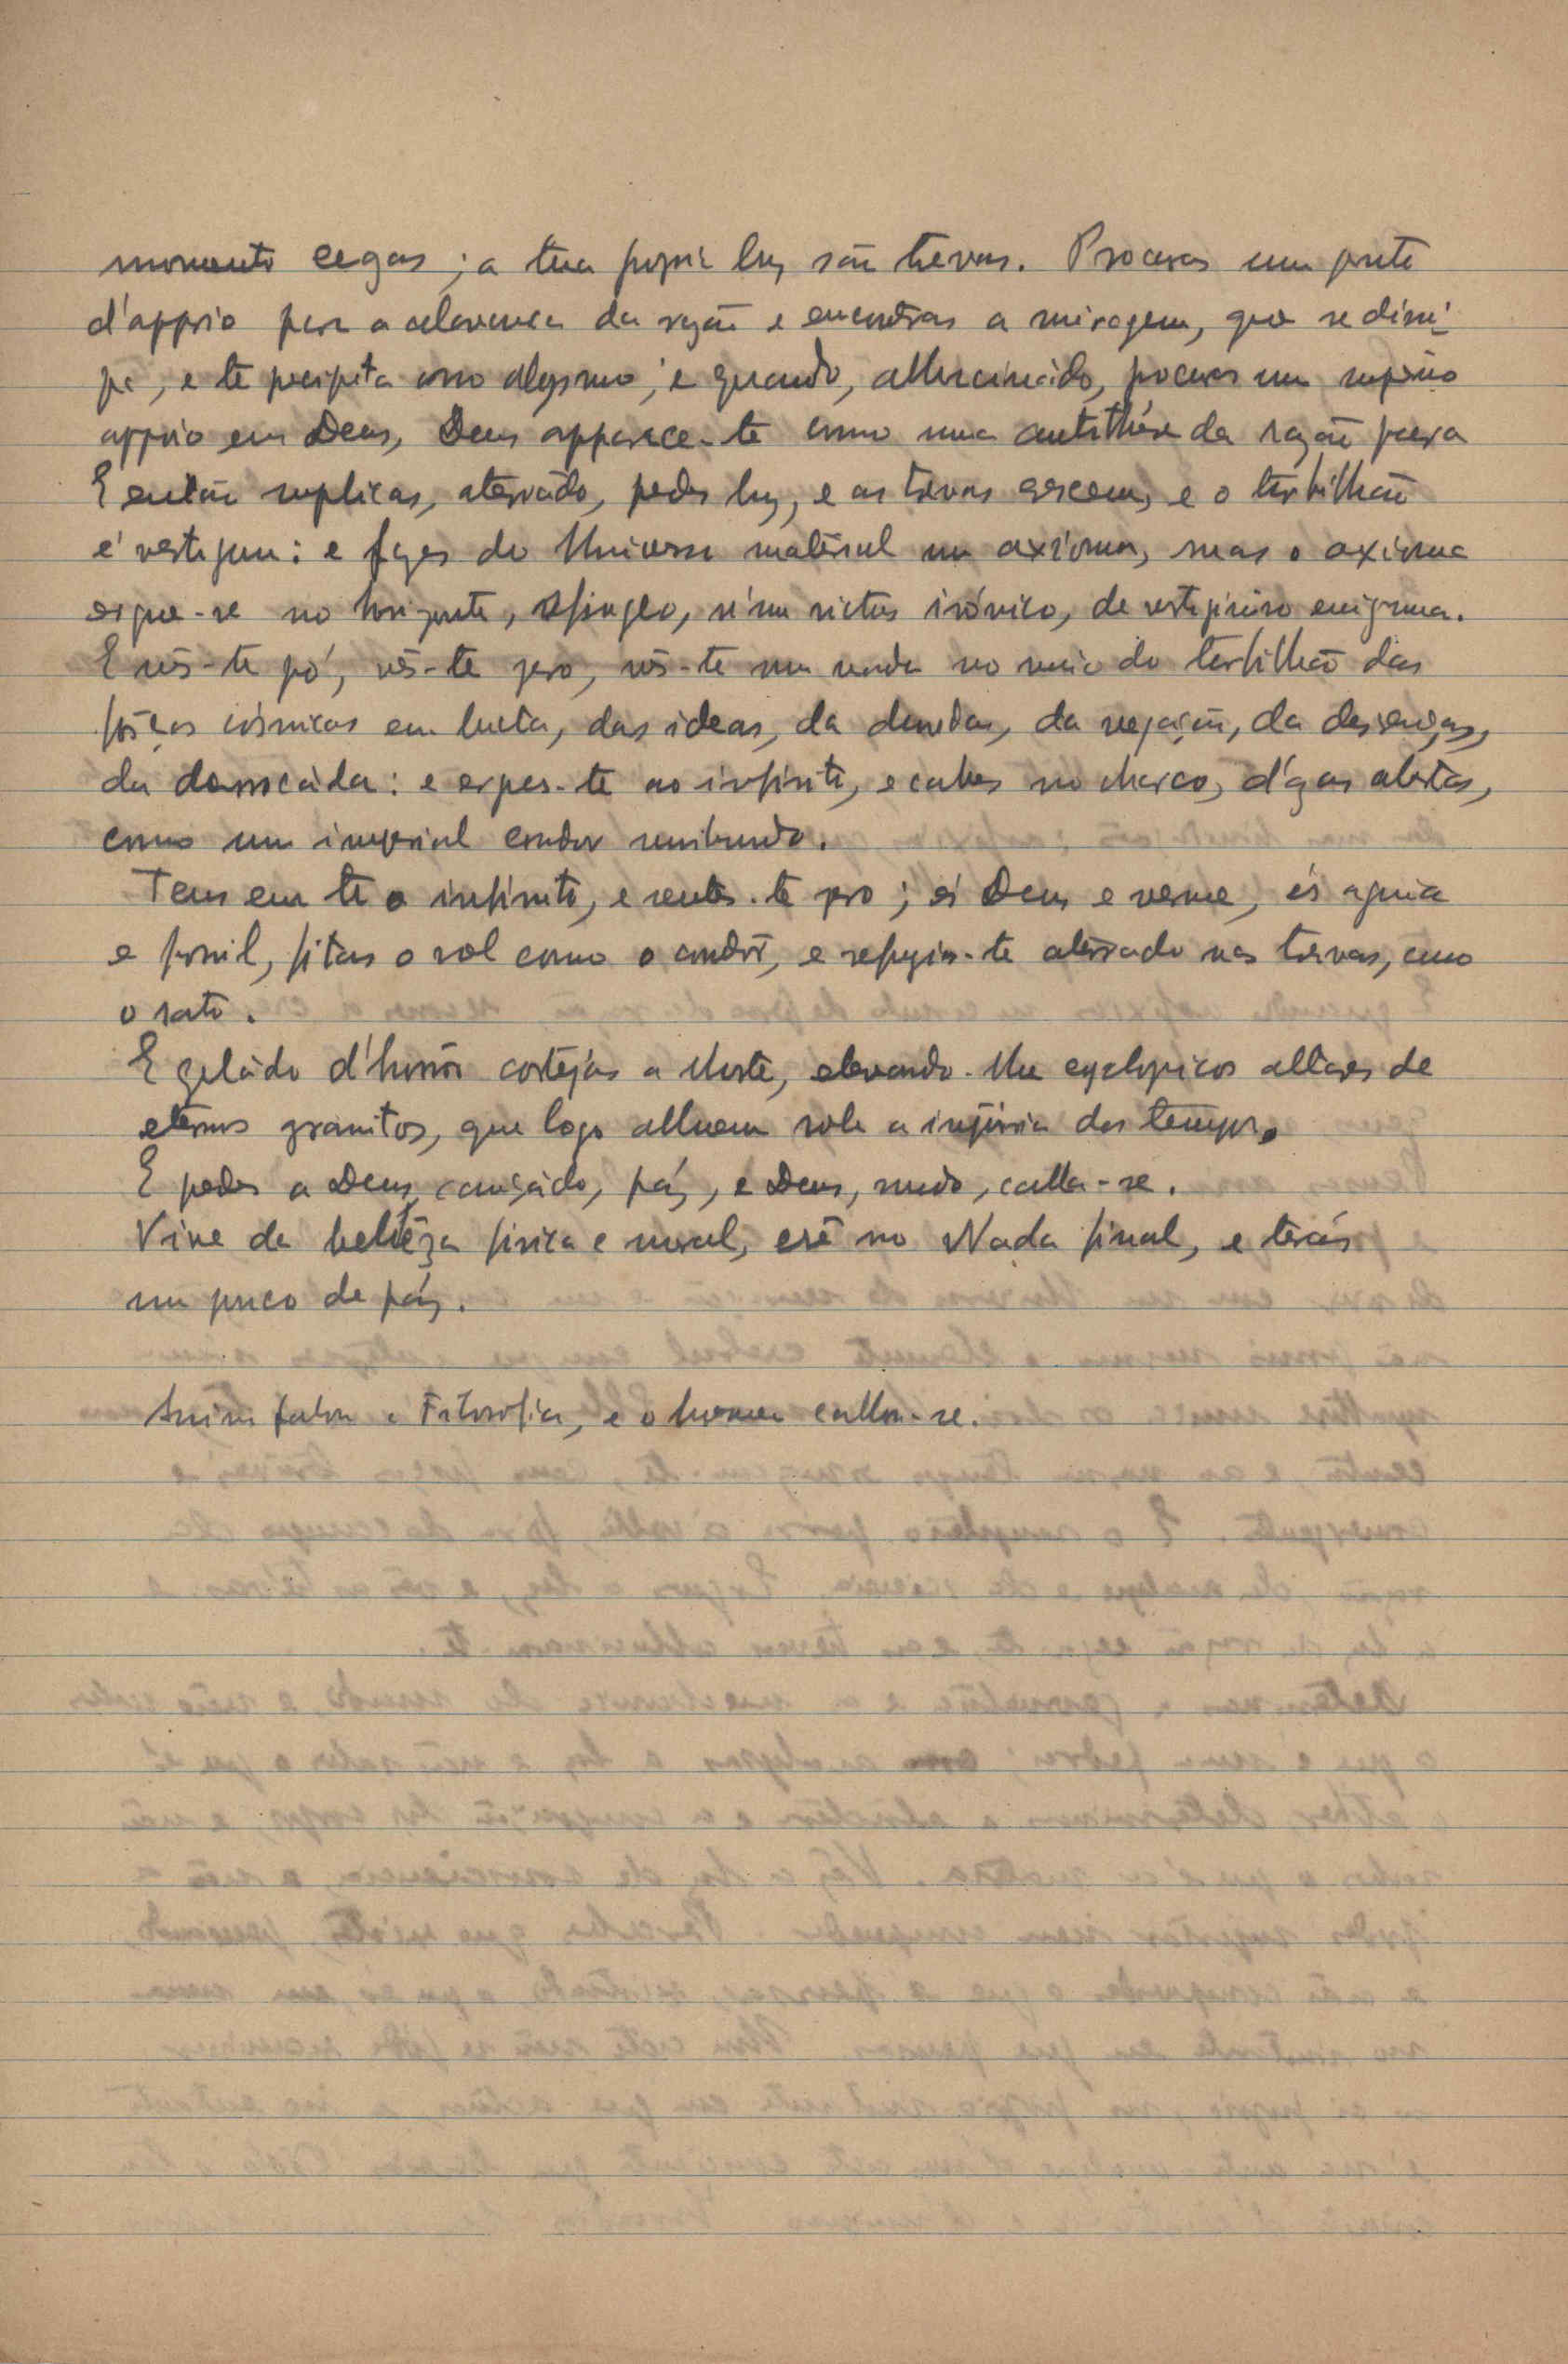 momento cegas; a tua propria luz são trevas. Procuras um ponto
d'appoio para a alavanca da razão e encontras a miragem, que se dissi-
pa, e te precipita no abysmo; e quando, allucinado, procuras um supremo
appoio em Deus, Deus apparece-te como uma antithése da razão pura
E então supplicas, aterrado, pedes luz, e as trevas crescem, e o turbilhão
é vertigem: e fazes do Universo material um axioma, mas o axioma
ergue-se no horizonte, esfingeo, n'um rictus irónico, de vertiginoso enigma.
E vês-te pó, vês-te zero, vês-te um nada no meio do turbilhão das
fôrças cósmicas em lucta, das ideas, da duvidas, da negação, da descrenças,
da derrocada: e ergues-te ao infinito, e cahes no charco, d'azas abertas,
como um imperial condor moribundo.
Tens em ti o infinito, e sentes-te zero; és Deus e verme, és aguia
e fossil, fitas o sol como o condôr, e refugias-te aterrado nas trevas, como
o rato.
E gelado d'horrôr cortejas a Morte, elevando-lhe cyclopicos altares de
eternos granitos, que logo alluem sob a injúria dos tempos.
E pedes a Deus, cançado, páz, e Deus, mudo, calla-se.
Vive da belleza fisica e moral, crê no Nada final, e terás
um pouco de páz.
Assim falou a Filosofia, e o homem callou-se.